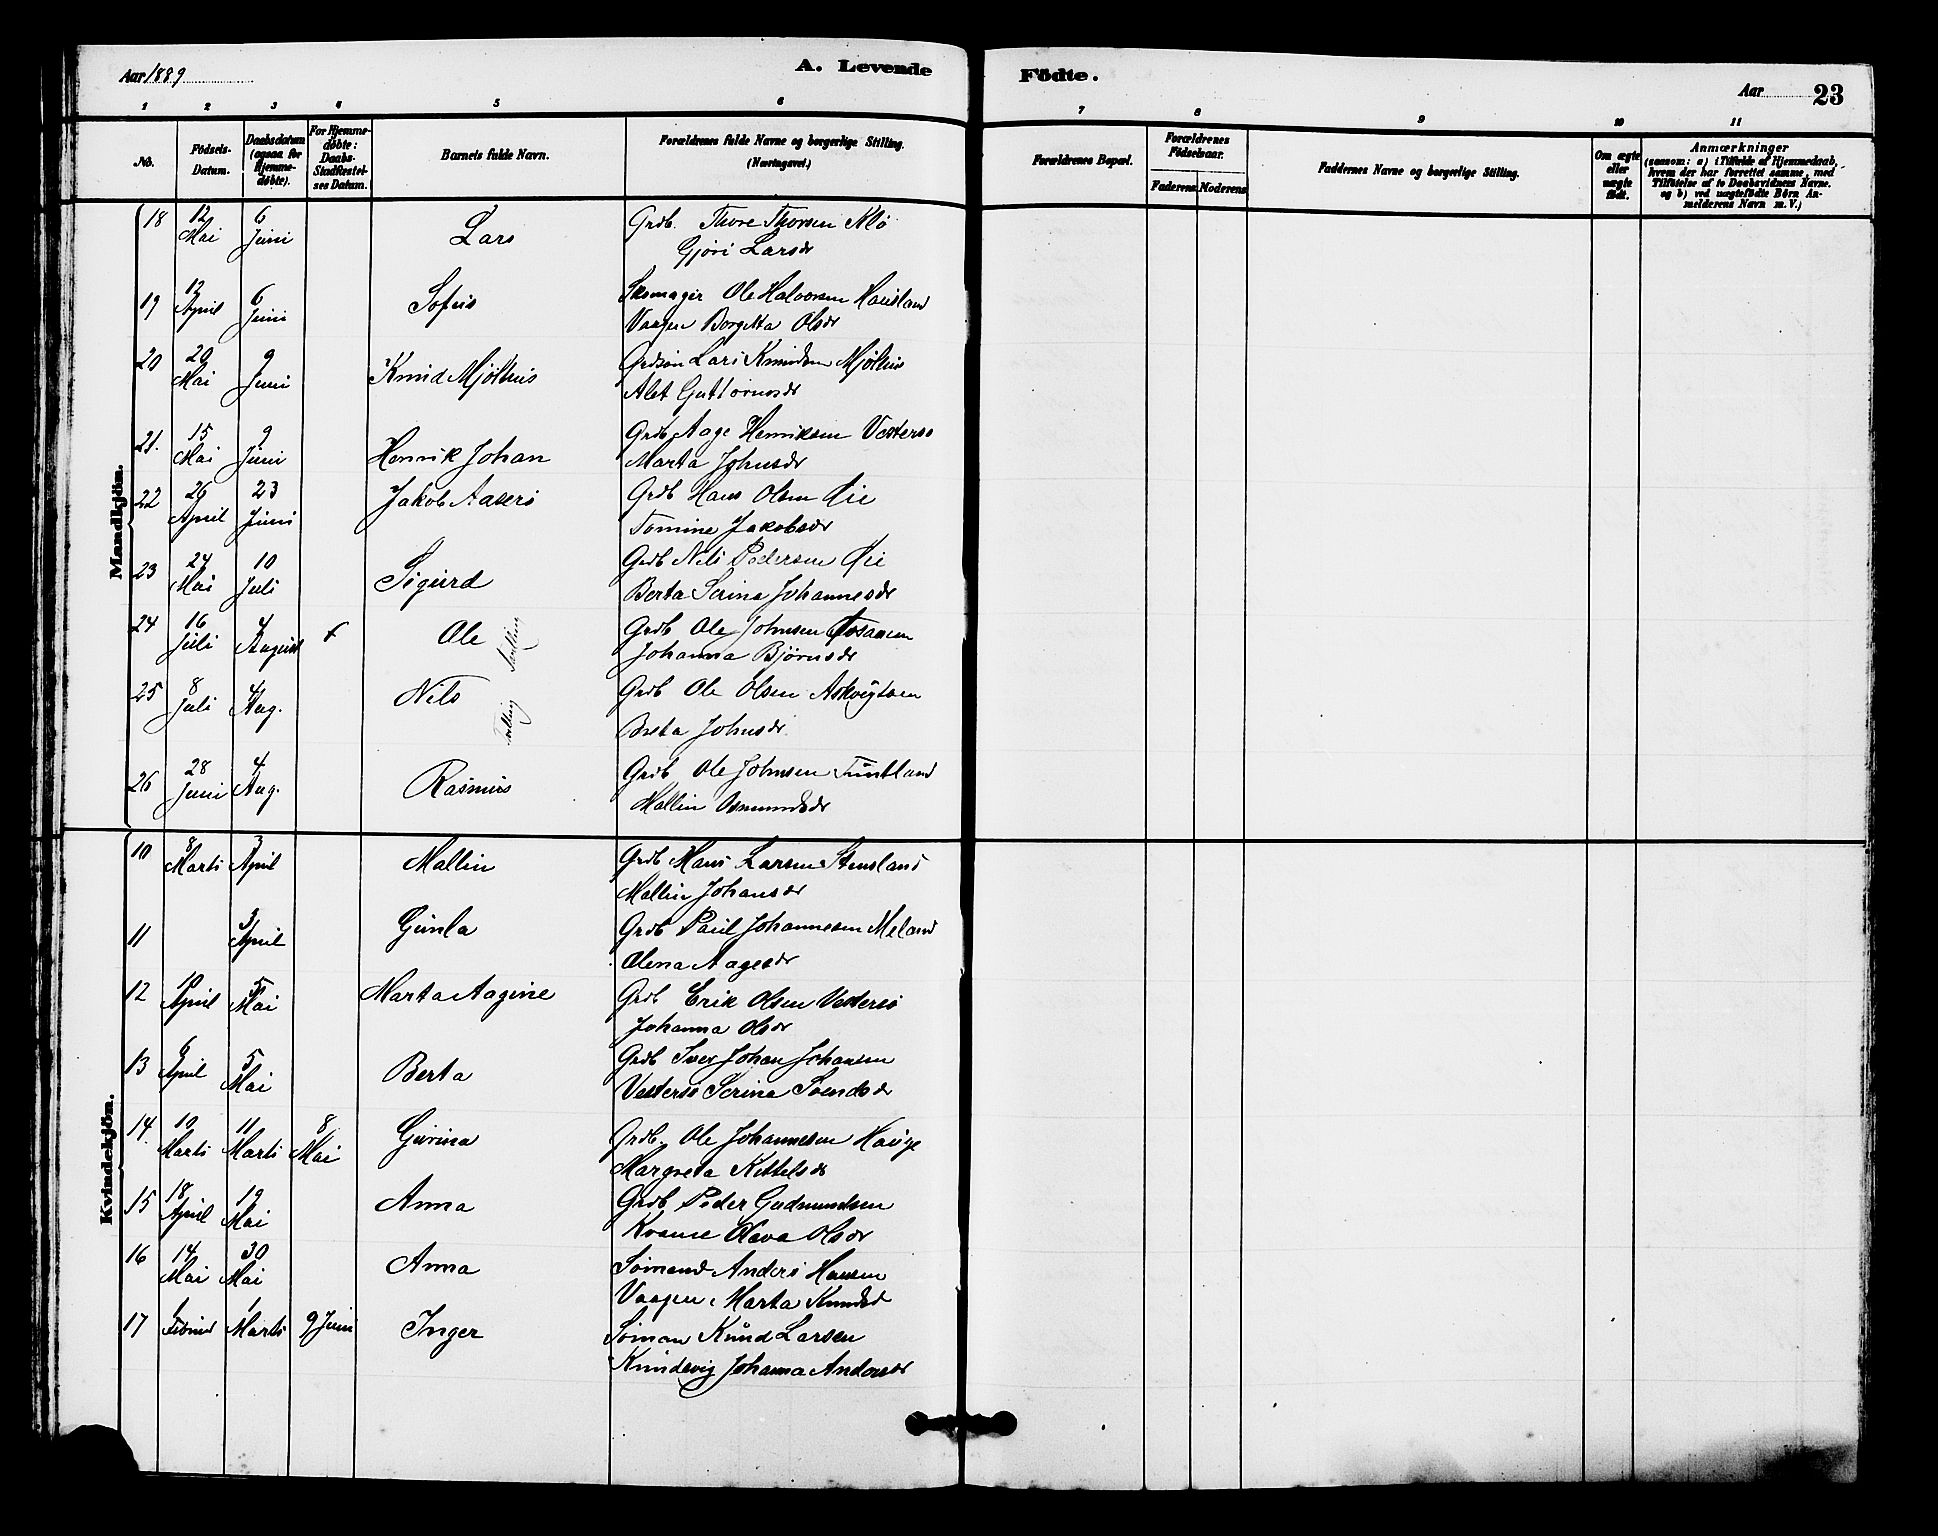 Aar 1889
A. Levende
Födte.
Aar 23
1 2 3 4 5 6 7 8 9 10 11
No.
Födsels-Datum.
Daabsdatum (ogsaa for Hjemme-døbte).
For Hjemme-døbte: Daabs-Stadfæstel-ses Datum.
Barnets fulde Navn.
Forældrenes fulde Navne og borgerlige Stilling.
(Næringsvei.)
Forældrenes Bopæl.
Forældrenes Fødselsaar.
Faderens Moderens
Faddernes Navne og borgerlige Stilling.
Om ægte eller uægte født.
Anmærkninger
(saasom: a) i Tilfælde af Hjemmedaab,
hvem der har forrettet samme, med
Tilføielse af to Daabsvidners Navne.
og b) ved uægtefødte Børn An-
melderens Navn m. V.)
Mandkjön.
18 12 Mai 6 Juni Lars Grdb. Thore Thorsen Klø
Gjøri Larsdr
19 12 April 6 Juni Sofus Skomager Ole Halvorsen Hausland
Vaagen Borgitta Olsdr
20 20 Mai 9 Juni Knud Mjølhus Grdsøn Lars Knudsen Mjølhus
Alet Guttormsdr
21. 15 Mai 9 Juni Henrik Johan Grdb Aage Henriksen Vesterø
Marta Johnsdr
22 26 April 23 Juni Jakob Aaserø Grdb Hans Olsen Øie
Tomine Jakobsdr
23 24 Mai 10 Juli Sigurd Grdb Nils Pedersen Øie
Berta Serina Johannesdr
24 16 Juli 4 August + Ole Grdb Ole Johnsen
Johanna Bjørnsdr
25 8 Juli 4 Aug. Nils Tvilling Grdb Ole Olsen Askvigtoen
Breta Johnsdr
26 28 Juni 4 Aug. Rasmus Grdb Ole Johnsen Tuntland
Mallin Osmundsdr
Kvindekjön.
10 8 Marts 3 April Mallin Grdb Hans Larsen Stensland
Mallin Johansdr
11 3 April Gunla Grdb Paul Johannesen Meland
Olena Aagesdr
12 10 April 5 Mai Marta Aagine Grdb Erik Olsen Vesterø
Johanna Olsdr
13 6 April 5 Mai Berta Grdb Iver Johan Johansen
Vesterø Serina Svendsdr
14. 10 Marts 11 Marts 8 Mai Gurina Grdb. Ole Johannesen Hauge
Margreta Kittelsdr
15 18 April 19 Mai Anna Grdb Peder Gudmundsen
Olava Olsdr
16 14 Mai 30 Mai Anna Sømand Anders Hansen
Vaagen, Marta Knudsd
17 1 Marts 9 Juni Inger Søman Knud Larsen
Knudsvig Johanna Andersdr